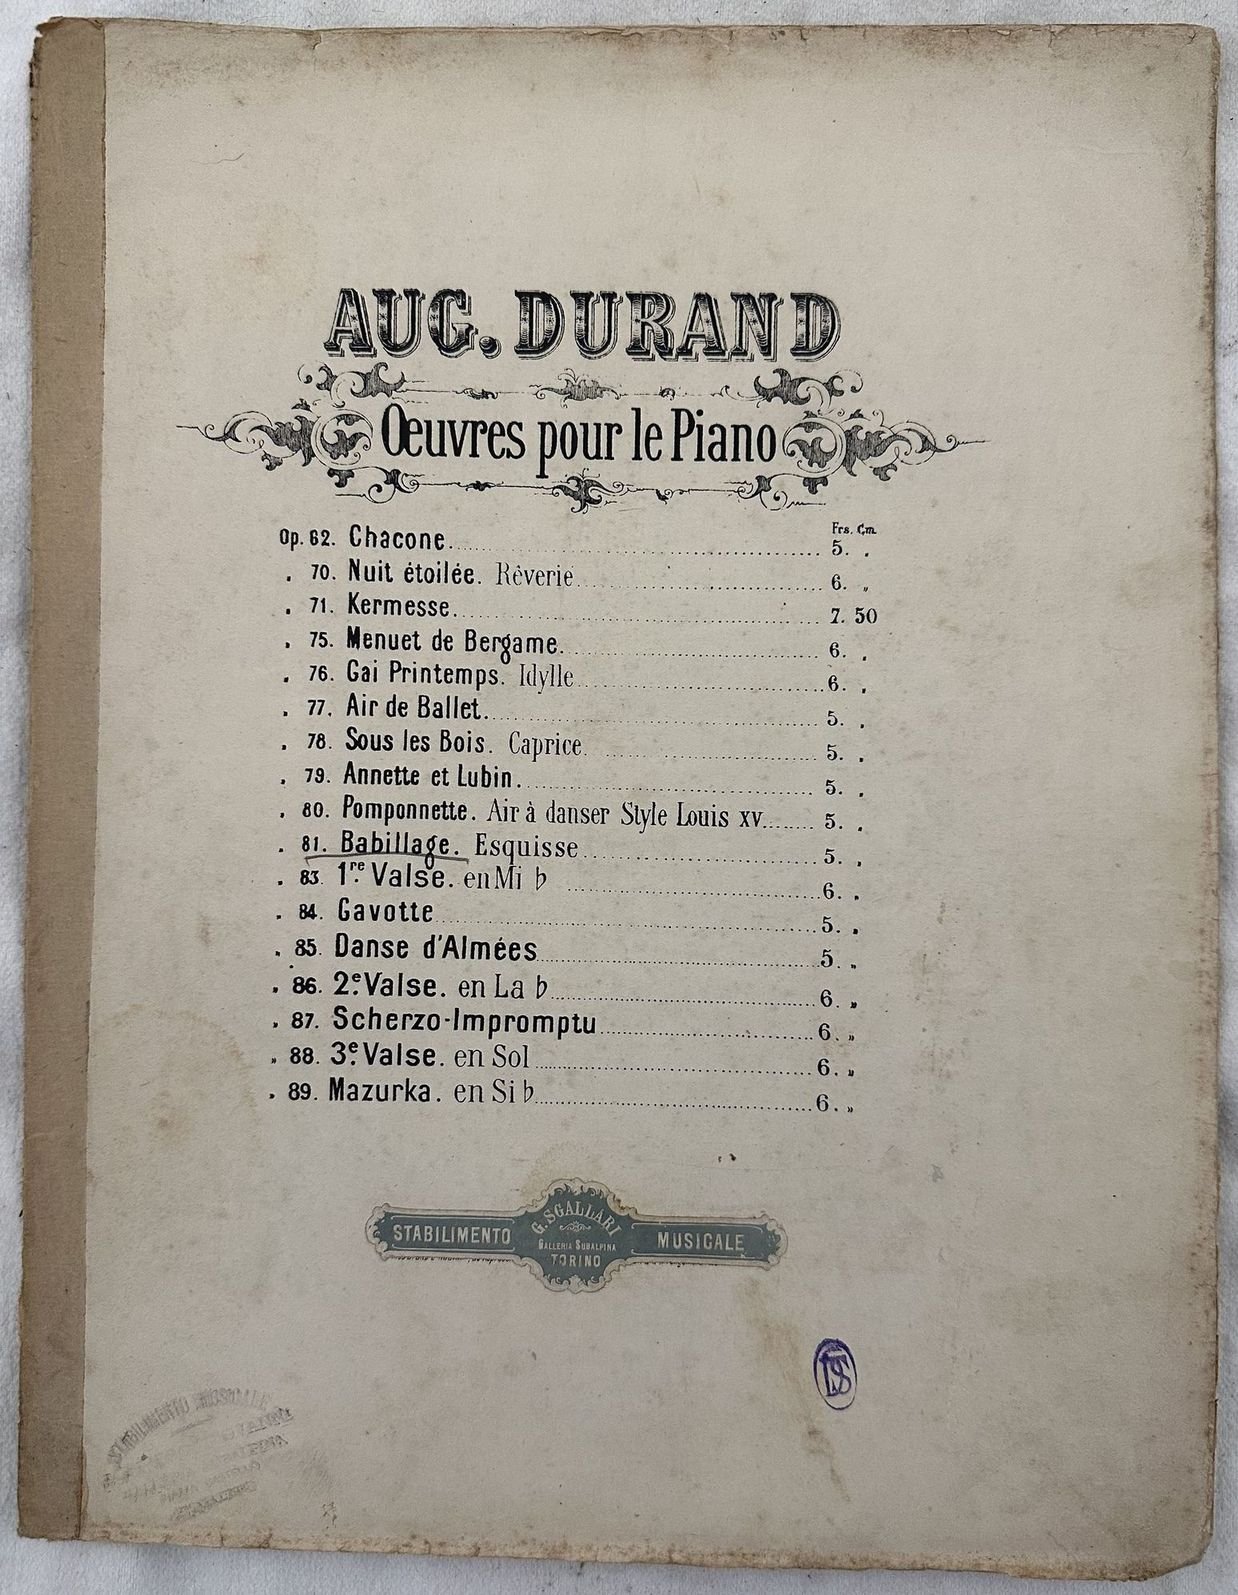 AUG. DURAND
Œuvres pour le Piano
Frs. Cm.
Op. 62. Chacone. 5. „
„ 70. Nuit étoilée. Rêverie 6. „
„ 71. Kermesse. 7. 50
„ 75. Menuet de Bergame. 6. „
„ 76. Gai Printemps. Idylle 6. „
„ 77. Air de Ballet. 5. „
„ 78. Sous les Bois. Caprice 5. „
„ 79. Annette et Lubin. 5. „
„ 80. Pomponnette. Air à danser Style Louis XV. 5. „
„ 81. Babillage. Esquisse 5. „
„ 83. 1re Valse. en Mi ♭ 6. „
„ 84. Gavotte 5. „
„ 85. Danse d'Almées 5. „
„ 86. 2e Valse. en La ♭ 6. „
„ 87. Scherzo-Impromptu 6. „
„ 88. 3e Valse. en Sol 6. „
„ 89. Mazurka. en Si ♭ 6. „
STABILIMENTO G. SGALLARI MUSICALE
GALLERIA SUBALPINA
TORINO
STABILIMENTO